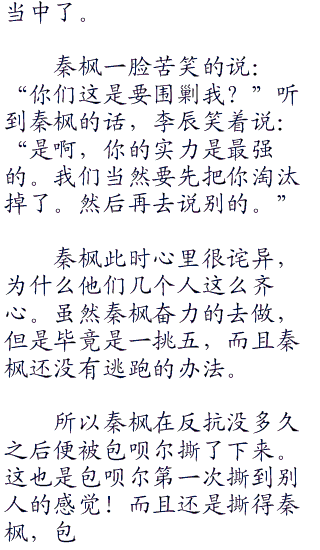 当中了。
秦枫一脸苦笑的说：
“你们这是要围剿我？”听
到秦枫的话，李辰笑着说：
“是啊，你的实力是最强
的。我们当然要先把你淘汰
掉了。然后再去说别的。”
秦枫此时心里很诧异，
为什么他们几个人这么齐
心。虽然秦枫奋力的去做，
但是毕竟是一挑五，而且秦
枫还没有逃跑的办法。
所以秦枫在反抗没多久
之后便被包呗尔撕了下来。
这也是包呗尔第一次撕到别
人的感觉！而且还是撕得秦
枫，包